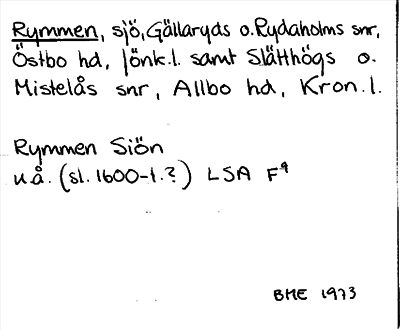 Rymmen, sjö, Gällaryds o. Rydaholms snr,
Östbo hd, Jönk. l. samt Slätthögs o.
Mistelås snr, Allbo hd, Kron. l.
Rymmen Siön
u.å. (sl. 1600-t.?) LSA F9
BME 1973